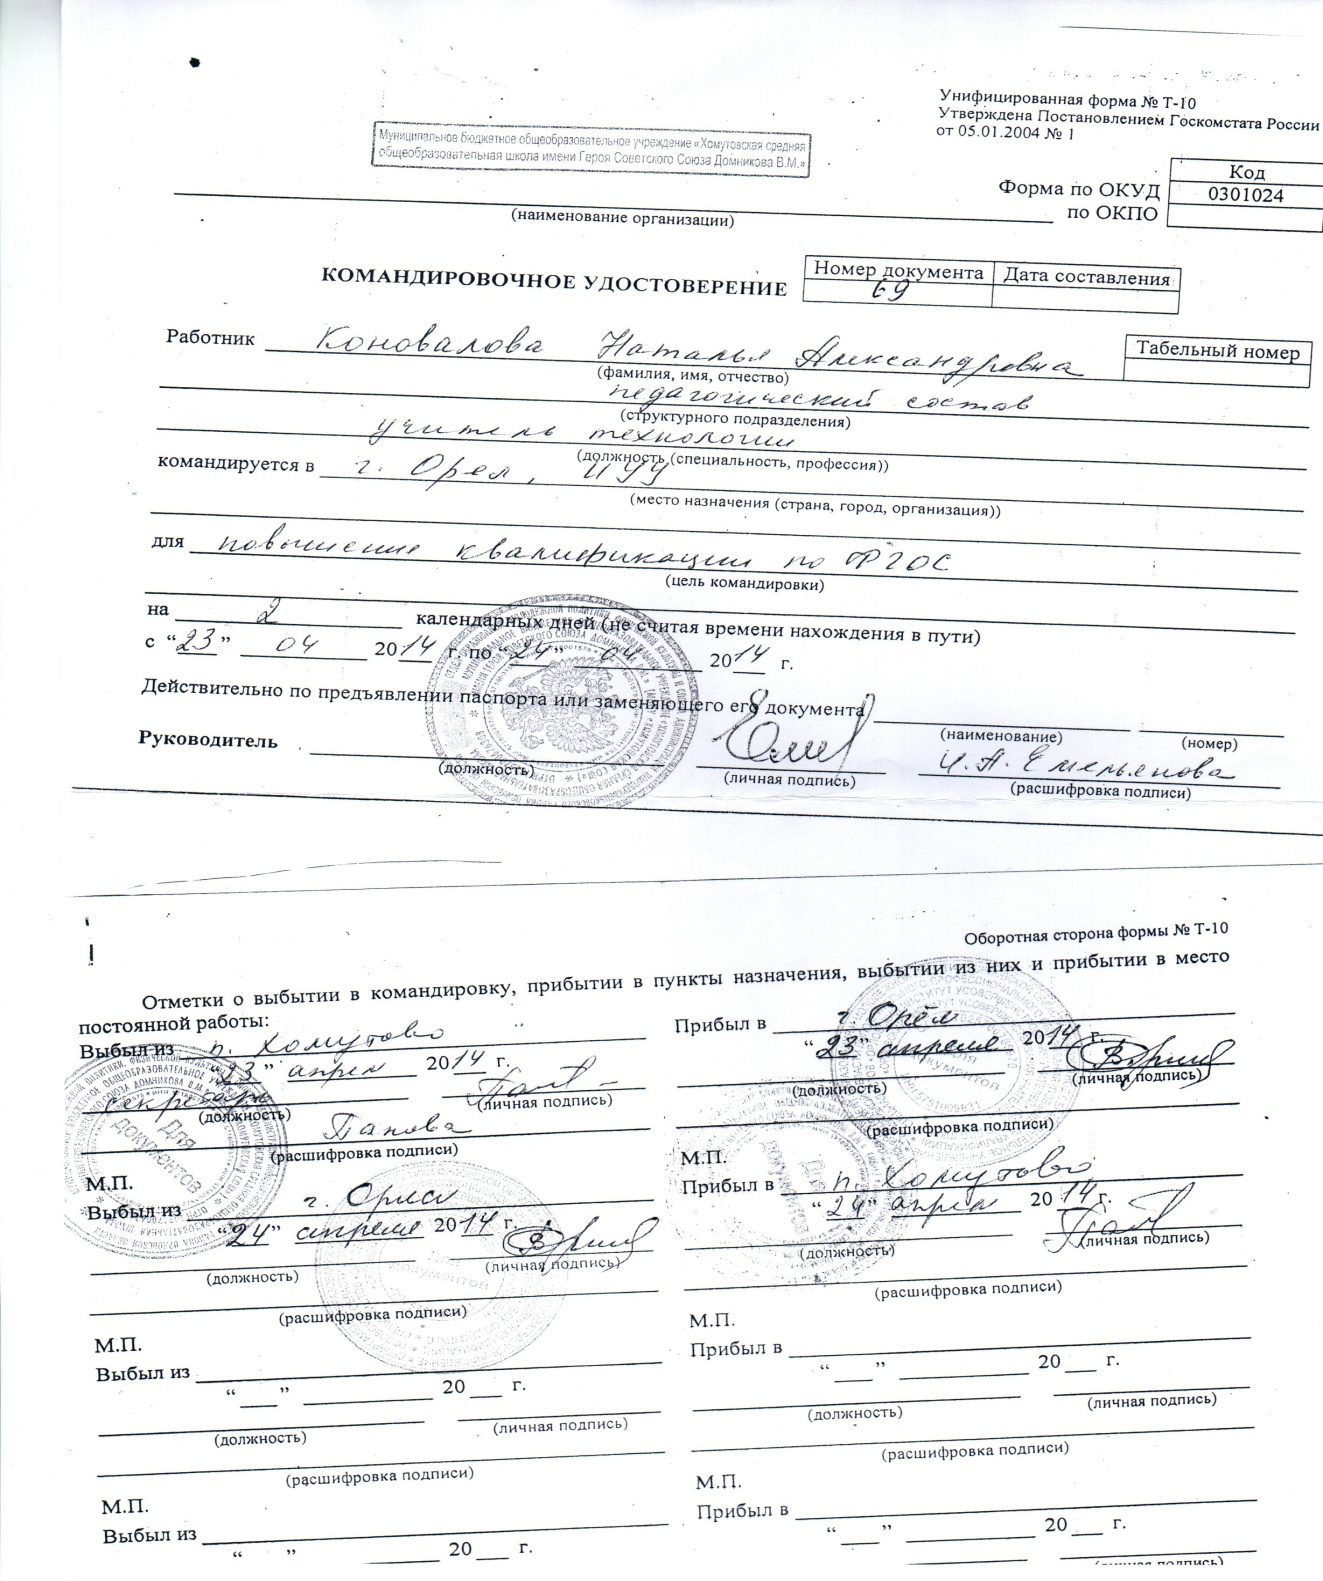 Унифицированная форма № Т-10
Утверждена Постановлением Госкомстата России
от 05.01.2004 № 1
Муниципальное бюджетное общеобразовательное учреждение «Хомутовская средняя
общеобразовательная школа имени Героя Советского Союза Домникова В.М.»
Код
Форма по ОКУД 0301024
по ОКПО
(наименование организации)
КОМАНДИРОВОЧНОЕ УДОСТОВЕРЕНИЕ
Номер документа Дата составления
69
Работник Коновалова Наталья Александровна
Табельный номер
(фамилия, имя, отчество)
педагогический состав
(структурного подразделения)
учитель технологии
(должность (специальность, профессия))
командируется в г. Орел, ИУУ
(место назначения (страна, город, организация))
для повышение квалификации по ФГОС
(цель командировки)
на 2 календарных дней (не считая времени нахождения в пути)
с “23” 04 2014 г. по “24” 04 2014 г.
Действительно по предъявлении паспорта или заменяющего его документа
(наименование) (номер)
Руководитель
И.А. Емельянова
(должность) (личная подпись) (расшифровка подписи)
Оборотная сторона формы № Т-10
Отметки о выбытии в командировку, прибытии в пункты назначения, выбытии из них и прибытии в место
постоянной работы:
Выбыл из п. Хомутово
“23” апреля 2014 г.
секретарь
(должность) (личная подпись)
Панова
(расшифровка подписи)
Для
документов
М.П.
Прибыл в г. Орёл
“23” апреля 2014 г.
(должность) (личная подпись)
(расшифровка подписи)
М.П.
Выбыл из г. Орла
“24” апреля 2014 г.
(должность) (личная подпись)
(расшифровка подписи)
М.П.
Прибыл в п. Хомутово
“24” апреля 2014 г.
(должность) (личная подпись)
(расшифровка подписи)
М.П.
Выбыл из
“ ” 20 г.
(должность) (личная подпись)
(расшифровка подписи)
М.П.
Прибыл в
“ ” 20 г.
(должность) (личная подпись)
(расшифровка подписи)
М.П.
Выбыл из
“ ” 20 г.
Прибыл в
“ ” 20 г.
(личная подпись)